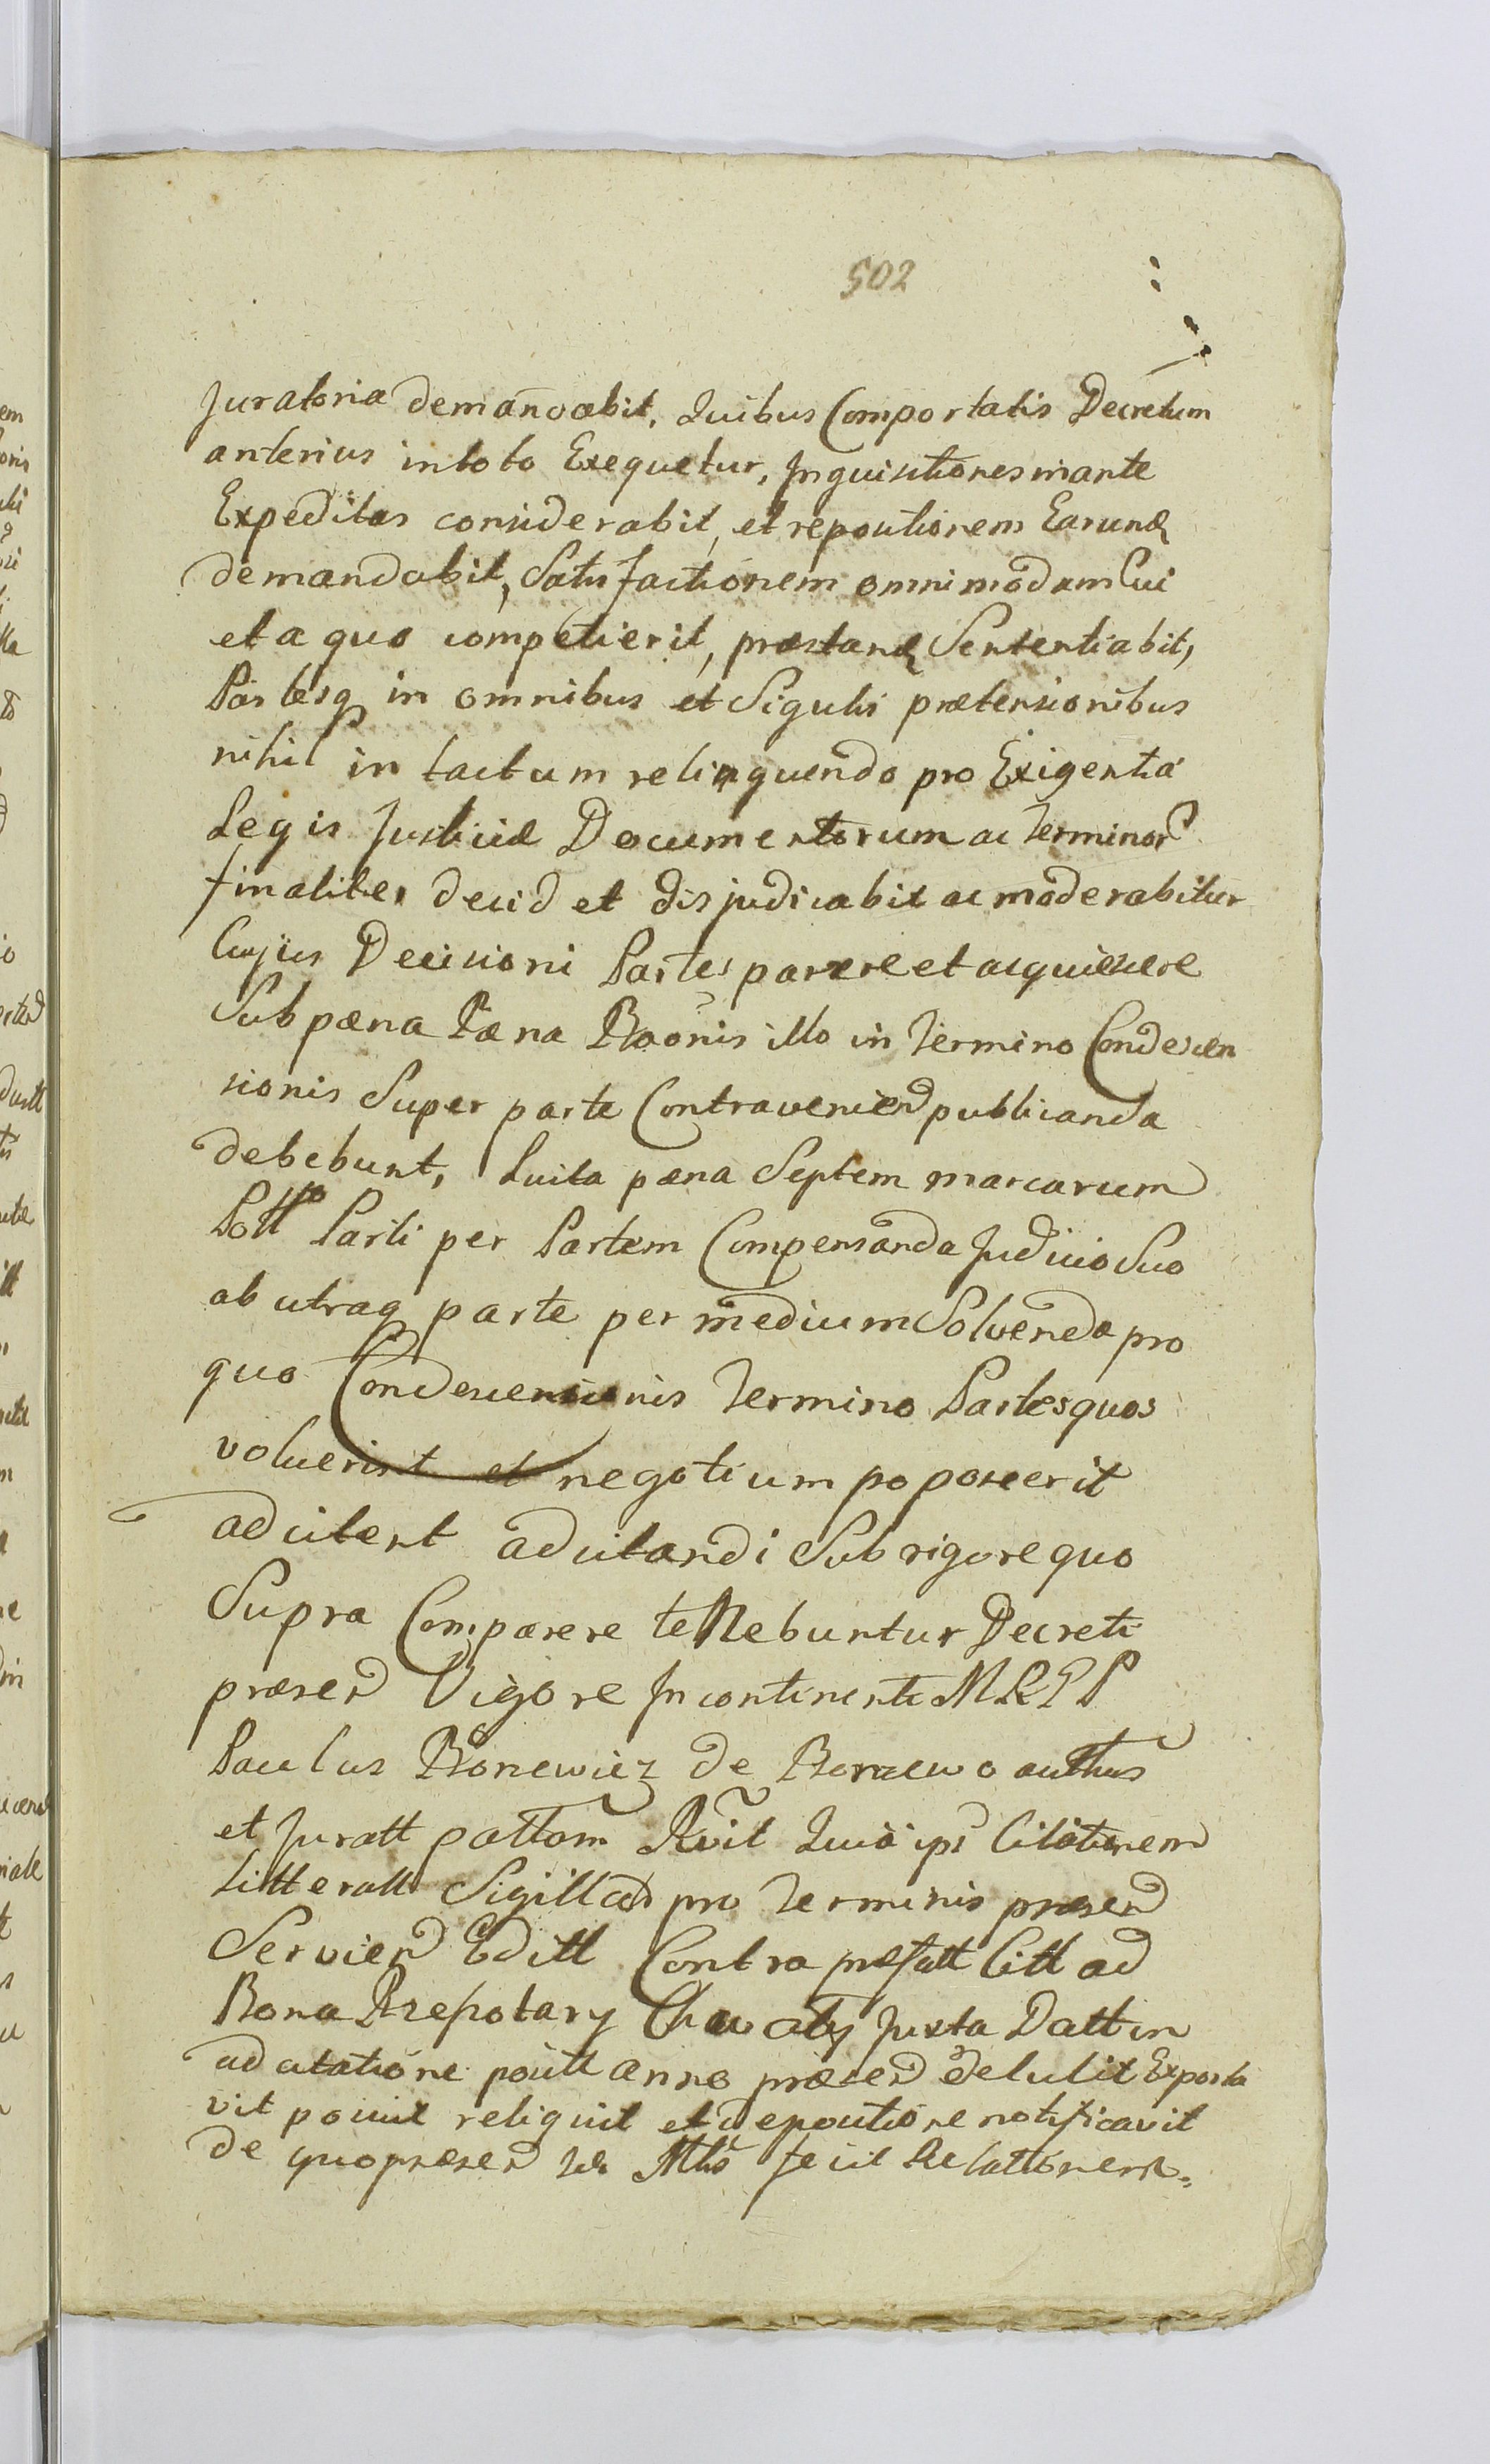 502
Juratoria demandabit, Quibus Comportatis Decretum
anterius in toto Exequetur, Inquisitiones inante
Expeditas considerabit, et repositionem Earund
demandabit, Satisfactionem omnimodam Cui
et a quo competierit, præstand Sententiabit,
Partesq in omnibus et Sigulis prætensionibus
nihil in tactum relinquendo pro Exigentia
Legis Justitiæ Documentorum ac Terminor
finaliter decid et disjudicabit ac moderabitur
Cujus Decisioni Partes parere et acquiescere
Sub pæna Pæna Bãonis illo in Termino Condescen
sionis Super parte Contraveniend publicanda
debebunt, Luita pæna Septem marcarum
Poll Parti per Partem Compensanda Judicio Suo
ab utraq parte per medium Solvenda pro
quo Condescensionis Termino Partes quos
voluerint et negotium poposcerit
adcitent adcitandi Sub rigore quo
Supra Comparere tenebuntur Decreti
præsen Vigore In continenti M R P P
Paulus Bonewicz de Borzewo
et Juratt Rvit Quia ips Citationem
Litteratt Sigillatt pro Terminis præsen
Servien Editt Contra præfatt Citt ad
Bona Juxta Datt in
adcitatione positt anno præsen detulit Exporta
vit posuit reliquit et depositione notificavit
de quo præsen fecit Relationem.